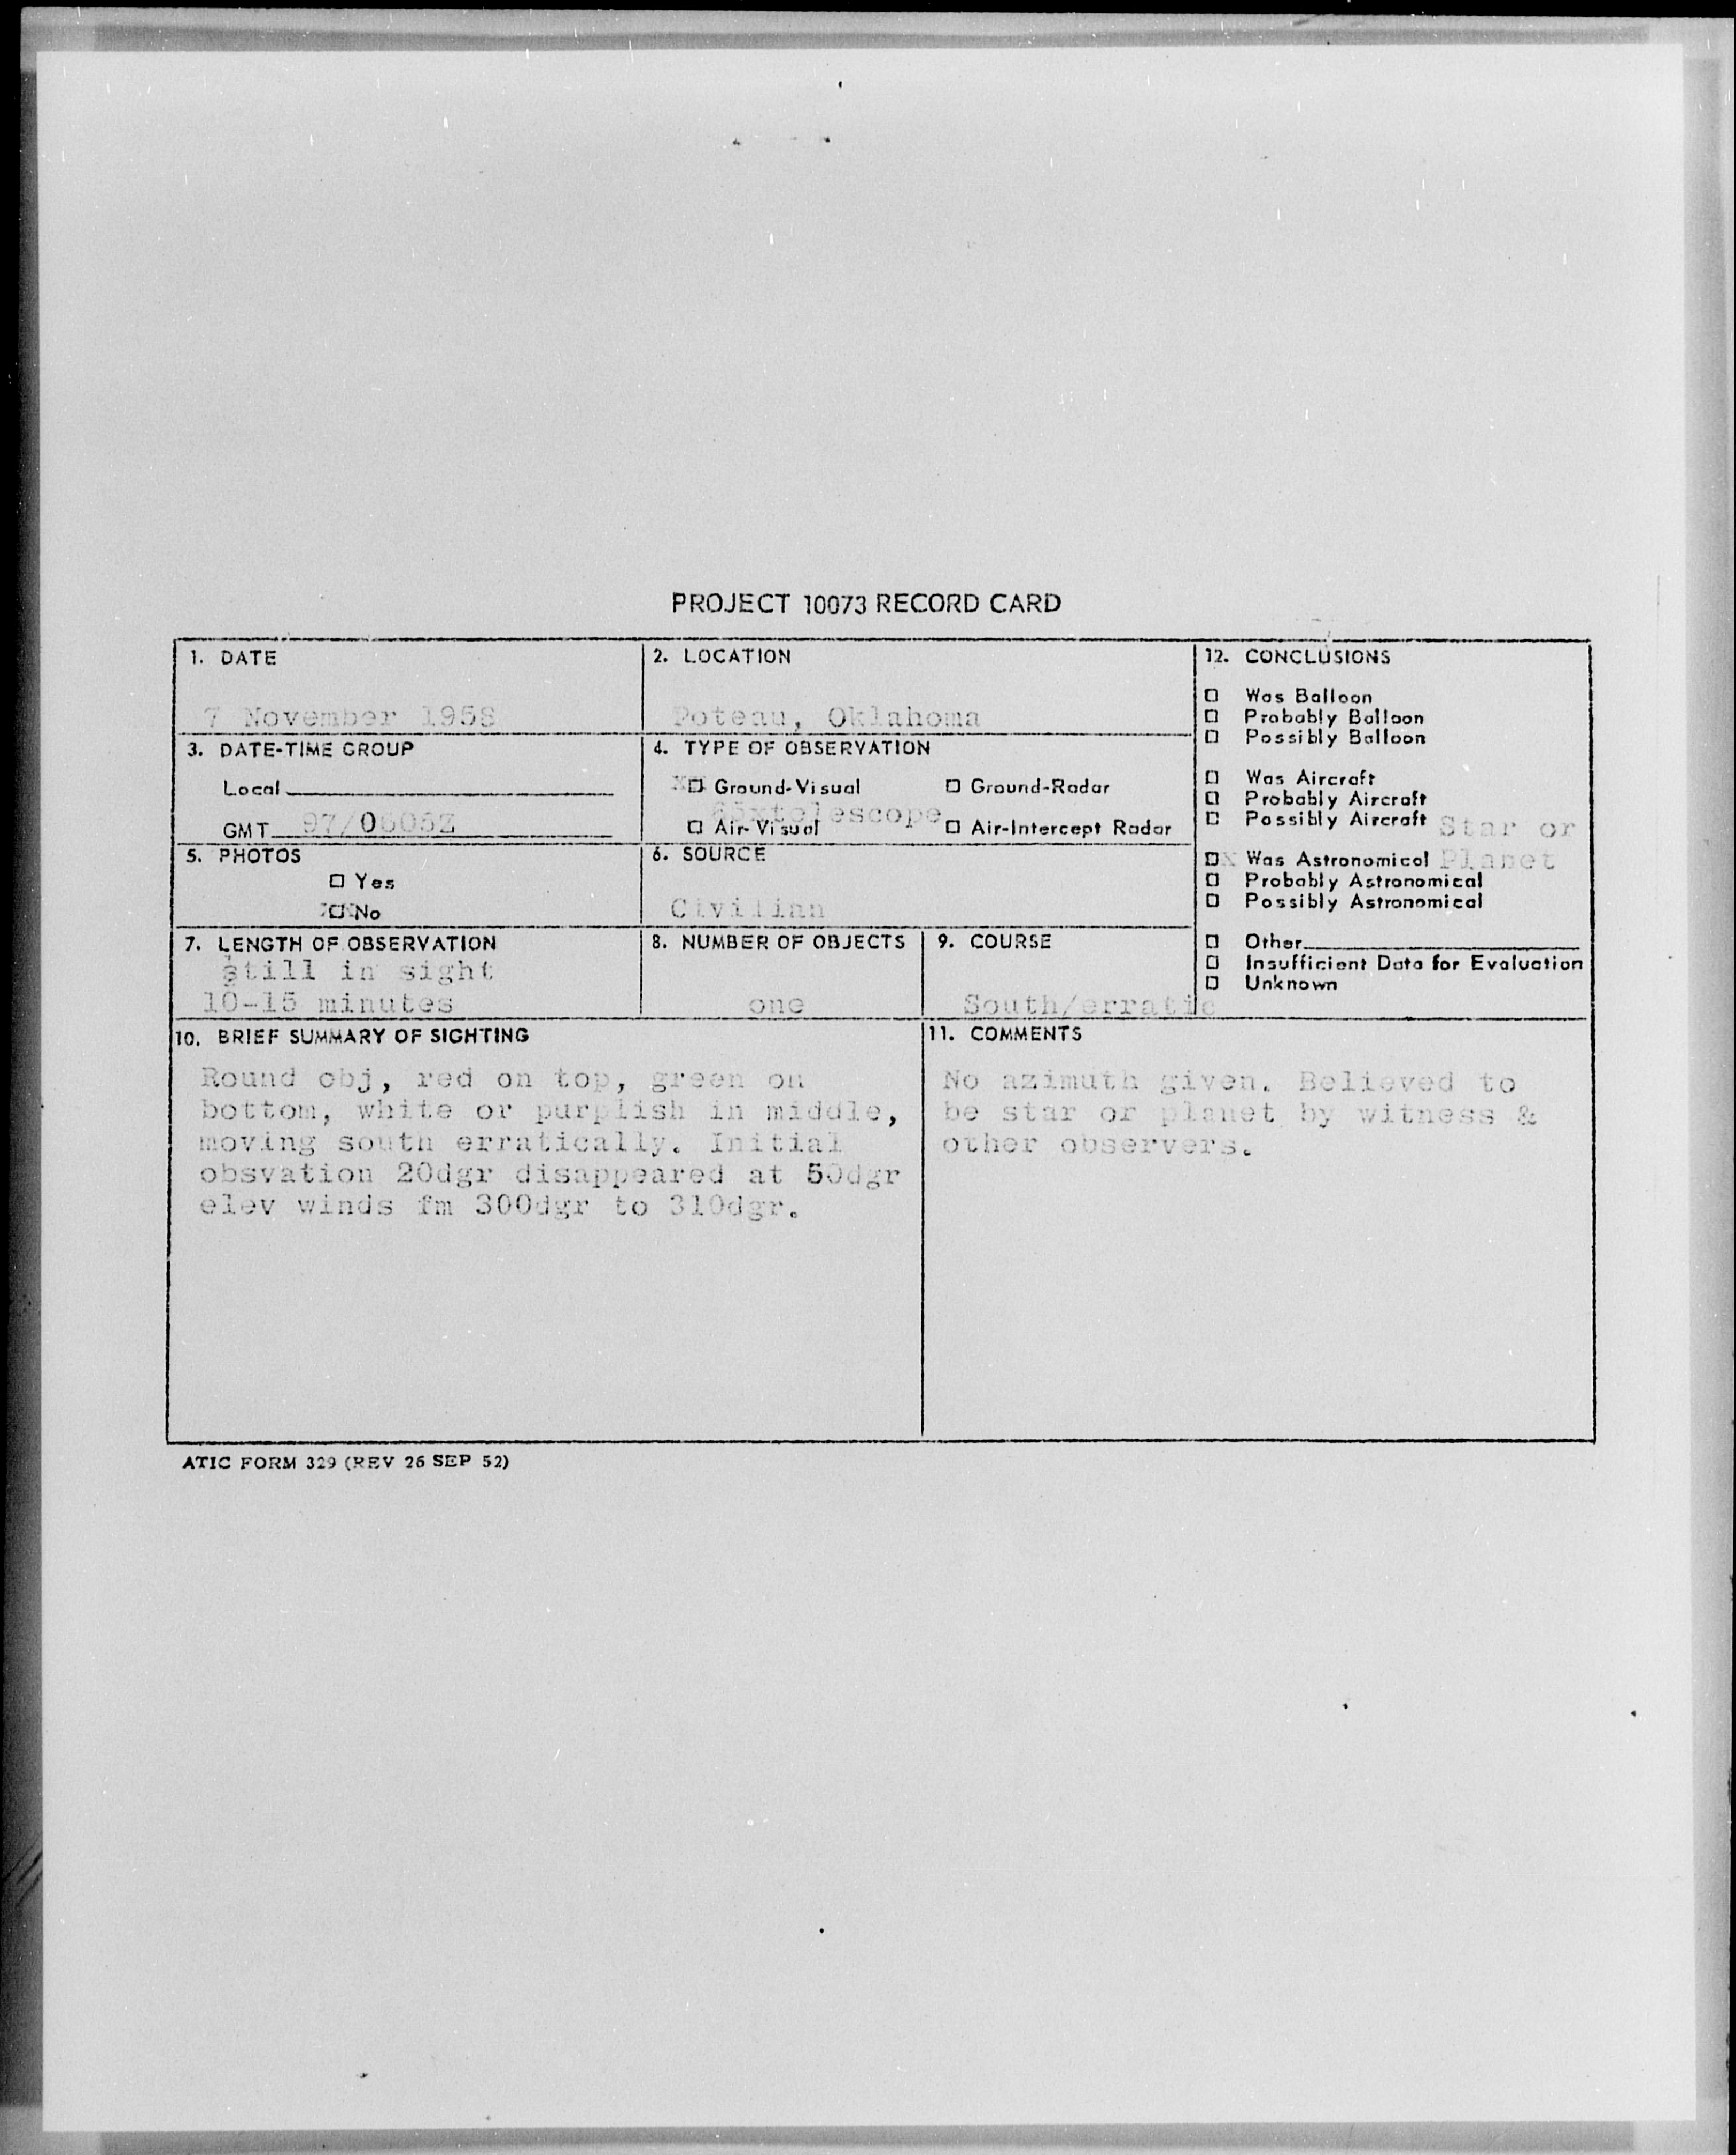 PROJECT 10073 RECORD CARD
1. DATE
7 November 1958
2. LOCATION
Poteau, Oklahoma
3. DATE-TIME GROUP
Local
GMT 07/0605Z
4. TYPE OF OBSERVATION
XX☐ Ground-Visual ☐ Ground-Radar
telescope
☐ Air-Visual ☐ Air-Intercept Radar
5. PHOTOS
☐ Yes
XX☐ No
6. SOURCE
Civilian
7. LENGTH OF OBSERVATION
still in sight
10-15 minutes
8. NUMBER OF OBJECTS
one
9. COURSE
South/erratic
12. CONCLUSIONS
☐ Was Balloon
☐ Probably Balloon
☐ Possibly Balloon
☐ Was Aircraft
☐ Probably Aircraft
☐ Possibly Aircraft Star or
☐X Was Astronomical Planet
☐ Probably Astronomical
☐ Possibly Astronomical
☐ Other
☐ Insufficient Data for Evaluation
☐ Unknown
10. BRIEF SUMMARY OF SIGHTING
Round obj, red on top, green on
bottom, white or purplish in middle,
moving south erratically. Initial
obsvation 20dgr disappeared at 50dgr
elev winds fm 300dgr to 310dgr.
11. COMMENTS
No azimuth given. Believed to
be star or planet by witness &
other observers.
ATIC FORM 329 (REV 26 SEP 52)